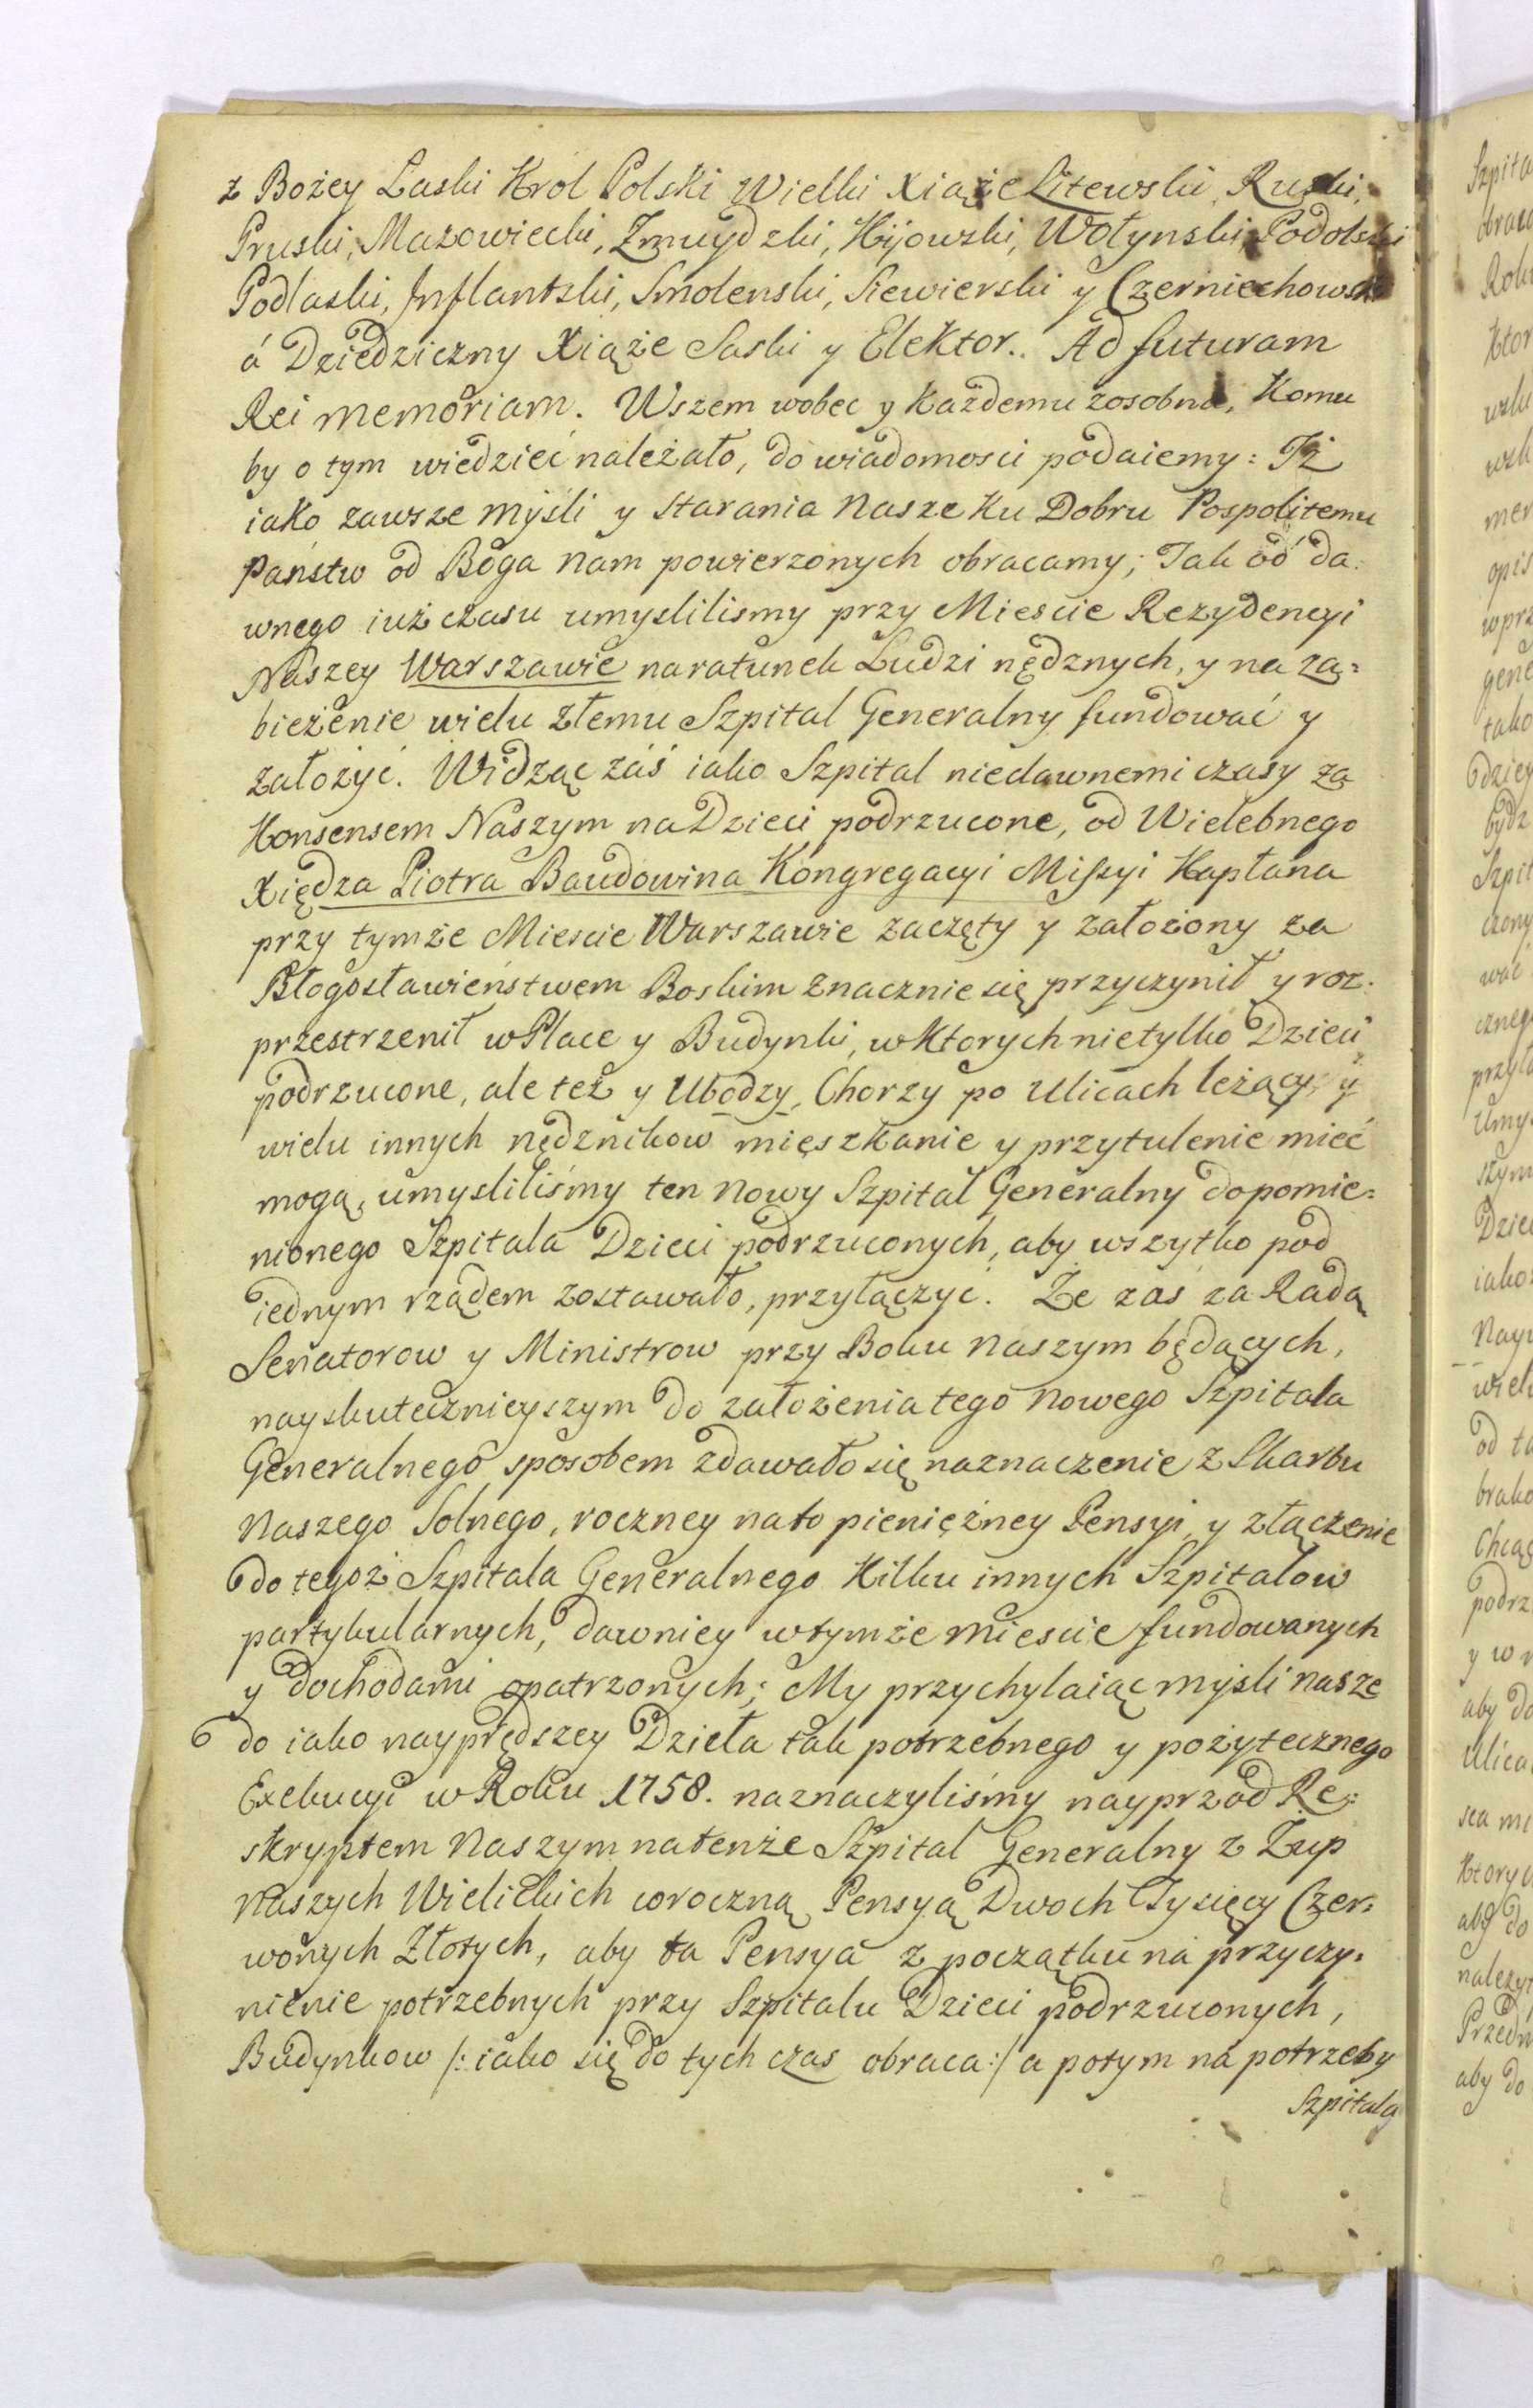 z Bożey Laski Krol Polski Wielki Xiąże Litewski, Ruski,
Pruski, Mazowiecki, Zmuydzki, Kijowski, Wołynski, Podolski
Podlaski, Inflantski, Smolenski, Siewierski y Czerniechowski
á Dziedziczny Xiąże Saski y Elektor.. Ad futuram
Rei memoriam. Wszem wobec y Każdemu zosobna, Komu
by o tym wiedzieć należało, do wiadomosci podaiemy: Iż
iako zawsze myśli y starania Nasze Ku Dobru Pospolitemu
Państw od Boga Nam powierzonych obracamy; Tak od da:
wnego iuż czasu umyslilismy przy Miescie Rezydencyi
Naszey Warszawie naratunek Ludzi nędznych, y na za=
bieżenie wielu złemu Szpital Generalny fundować y
założyć. Widząc záś iako Szpital niedawnemi czasy za
Konsensem Naszym na Dzieci podrzucone, od Wielebnego
Xiędza Piotra Baudowina Kongregacyi Missyi Kapłana
przy tymże Miescie Warszawie zaczęty y założony za
Błogosławieństwem Boskim znacznie się przyczynił y roz:
przestrzenił w Place y Budynki, w Ktorych nietylko Dzieci
podrzucone, ale też y Ubodzy, Chorzy po Ulicach leżący, y
wielu innych nędznikow mięszkanie y przytulenie mieć
mogą, umysliliśmy ten Nowy Szpital Generalny dopomie=
nionego Szpitala Dzieci podrzuconych, aby wszytko pod
iednym rządem zostawało, przyłączyć. Że zaś za Radą
Senatorow y Ministrow przy Boku Naszym będących,
nayskutecznieyszym do założenia tego Nowego Szpitala
Generalnego sposobem zdawało się naznaczenie z Skarbu
Naszego Solnego, roczney nato pieniężney Pensyi, y złączenie
do tegoż Szpitala Generalnego Kilku innych Szpitalow
partykularnych, dawniey wtymże miescie fundowanych
y dochodami opatrzonych; My przychylaiąc myśli nasze
do iako nayprędszey Dzieła tak potrzebnego y pożytecznego
Exekucyi w Roku 1758. naznaczyliśmy nayprzod Re=
skryptem Naszym natenże Szpital Generalny z Zup
Naszych Wielickich coroczną Pensyą Dwoch Tysięcy Czer=
wonych Złotych, aby ta Pensya z początku na przyczy=
nienie potrzebnych przy Szpitalu Dzieci podrzuconych,
Budynkow /: iako się do tych czas obraca :/ a potym na potrzeby
Szpitala